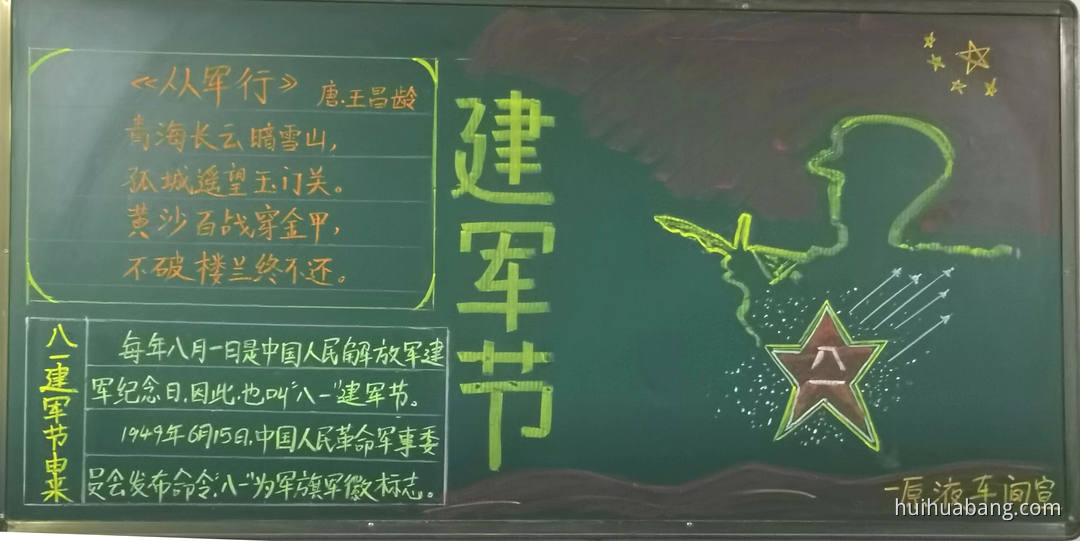 《从军行》 唐.王昌龄
青海长云暗雪山,
孤城遥望玉门关。
黄沙百战穿金甲,
不破楼兰终不还。
八一建军节由来
每年八月一日是中国人民解放军建
军纪念日.因此.也叫"八一"建军节。
1949年6月15日.中国人民革命军事委
员会发布命令."八一"为军旗军徽标志。
建军节
八一
一原液车间宣
huihuabang.com